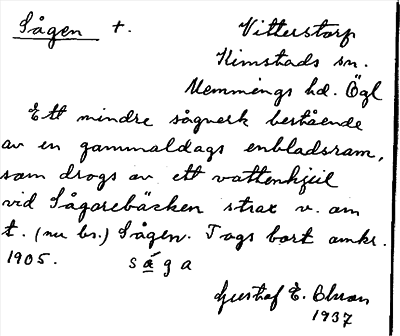 Sågen t. Vitterstorp
Kimstads sn.
Memmings hd. Ögl
Ett mindre sågverk bestående
av en gammaldags enbladsram,
som drogs av ett vattenhjul
vid Sågarebäcken strax v. om
t. (nu bs.) Sågen. Togs bort omkr.
1905. såga
Gustaf E. Olson
1937